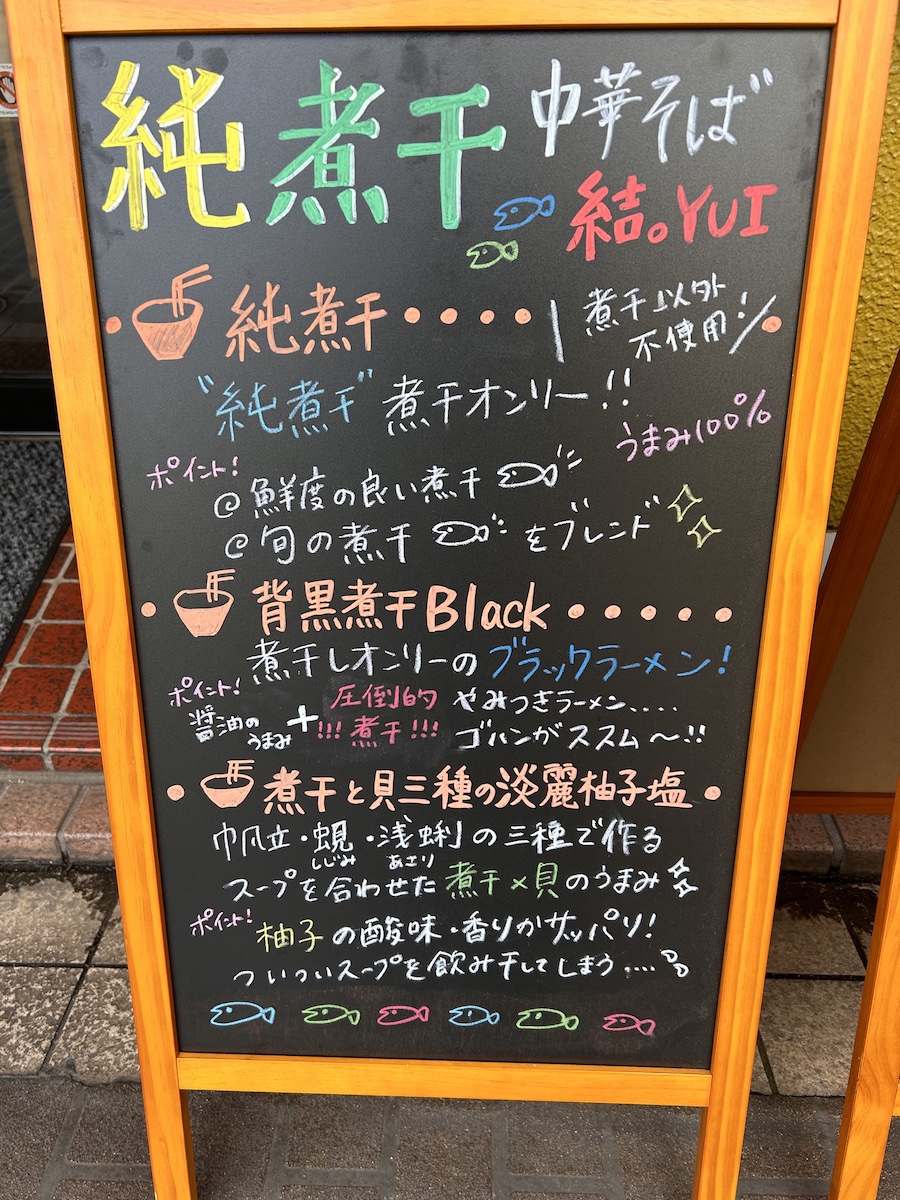 純煮干 中華そば
結。YUI
純煮干
煮干以外
不使用!
"純煮干" 煮干オンリー!!
うまみ100%
ポイント!
@鮮度の良い煮干
@旬の煮干 をブレンド
背黒煮干Black
煮干しオンリーのブラックラーメン!
ポイント!
醤油の
うまみ
+
圧倒的
!!!煮干!!!
やみつきラーメン....
ゴハンがススム〜!!
煮干と貝三種の淡麗柚子塩
帆立・蜆・浅蜊の三種で作る
しじみ あさり
スープを合わせた煮干×貝のうまみ
ポイント!
柚子の酸味・香りがサッパリ!
ついついスープを飲み干してしまう....